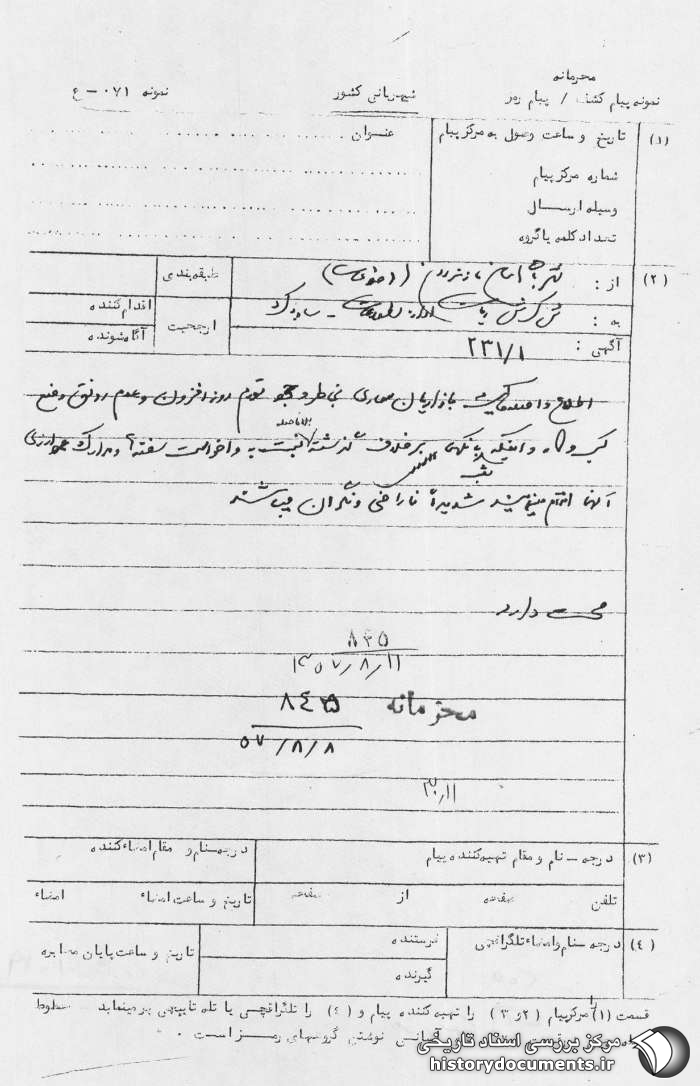 محرمانه
نمونه پیام کشف / پیام رمز
شهربانی کشور
نمونه ۰۷۱ – ع
(۱) تاریخ و ساعت وصول به مرکز پیام
عنوان
شماره مرکز پیام
وسیله ارسال
تعداد کلمه یا گروه
(۲) از :
طبقه‌بندی
به :
ارجحیت
اقدام کننده
آگاه شونده
آگهی : ۲۳۱/۱
اطلاع واصله حاکیست بازاریان ساری بخاطر وجود تورم روزافزون و عدم رونق وضع
کسب و کار و اینکه بانکها برخلاف گذشته بلافاصله نسبت به واخواست سفته و مدارک
آنها اقدام مینمایند شدیداً ناراضی و نگران میباشند
صحت دارد
۸۴۵
۱۳۵۷/۸/۱۱
محرمانه
۸۴۵
۵۷/۸/۸
(۳) درجه – نام و مقام تهیه کننده پیام
درجه – نام و مقام امضاء کننده
تلفن صفحه از صفحه
تاریخ و ساعت امضاء امضاء
(۴) درجه – نام و امضاء تلگرافچی
فرستنده
گیرنده
تاریخ و ساعت پایان مخابره
قسمت (۱) مرکز پیام (۲ و ۳) را تهیه کننده پیام و (۴) را تلگرافچی یا تله تایپچی پر مینماید خطوط
نوشتن گروههای رمز است .
مرکز بررسی اسناد تاریخی
historydocuments.ir